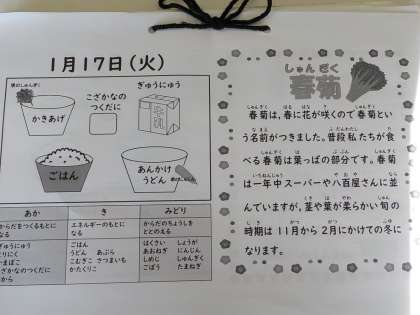 1月17日(火)
ぎゅうにゅう
こざかなの
つくだに
かきあげ
ごはん
あんかけ
うどん
あか
き
みどり
からだをつくるもとに
なる
エネルギーのもとに
なる
からだのちょうしを
ととのえる
ぎゅうにゅう
とりにく
かまぼこ
こざかなのつくだに
ごはん
うどん あぶら
こむぎこ さつまいも
かたくりこ
はくさい しょうが
あおねぎ にんじん
しめじ しゅんぎく
ごぼう たまねぎ
しゅん ぎく
春菊
春菊は、春に花が咲くので春菊とい
う名前がつきました。普段私たちが食
べる春菊は葉っぱの部分です。春菊
は一年中スーパーや八百屋さんに並
んでいますが、茎や葉が柔らかい旬の
時期は11月から2月にかけての冬に
なります。